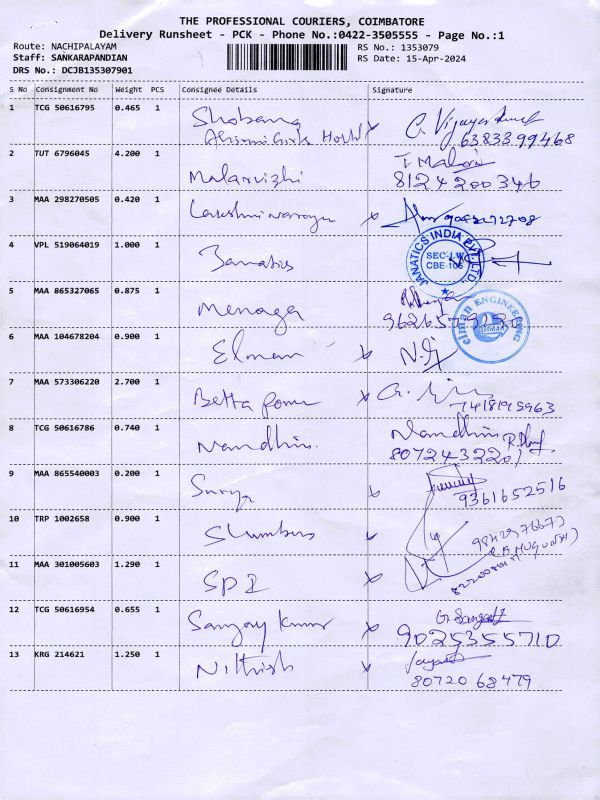 THE PROFESSIONAL COURIERS, COIMBATORE
Delivery Runsheet - PCK - Phone No.:0422-3505555 - Page No.:1
Route: NACHIPALAYAM
RS No.: 1353079
Staff: SANKARAPANDIAN
RS Date: 15-Apr-2024
DRS No.: DCJB135307901
S No Consignment No Weight PCS Consignee Details Signature
1 TCG 50616795 0.465 1 Shobana C. Vijaya
63833 99468
2 TUT 6796045 4.200 1 Malarvizhi T Malar
8124200346
3 MAA 298270505 0.420 1 Lakshminarayana
4 VPL 519064019 1.000 1 Janatics
JANATICS INDIA PVT. LTD.
SEC-LW
CBE-105
5 MAA 865327065 0.875 1 Menaga
ENGINEERING
6 MAA 104678204 0.900 1 Elman
7 MAA 573306220 2.700 1 Betta Power
7418195963
8 TCG 50616786 0.740 1 Nandhini Nandhini
807243220
9 MAA 865540003 0.200 1 Surya
9361652516
10 TRP 1002658 0.900 1 Slumbers
11 MAA 301005603 1.290 1 SPI
12 TCG 50616954 0.655 1 Sanjay Kumar
90253 55710
13 KRG 214621 1.250 1 Nithish
80720 68479